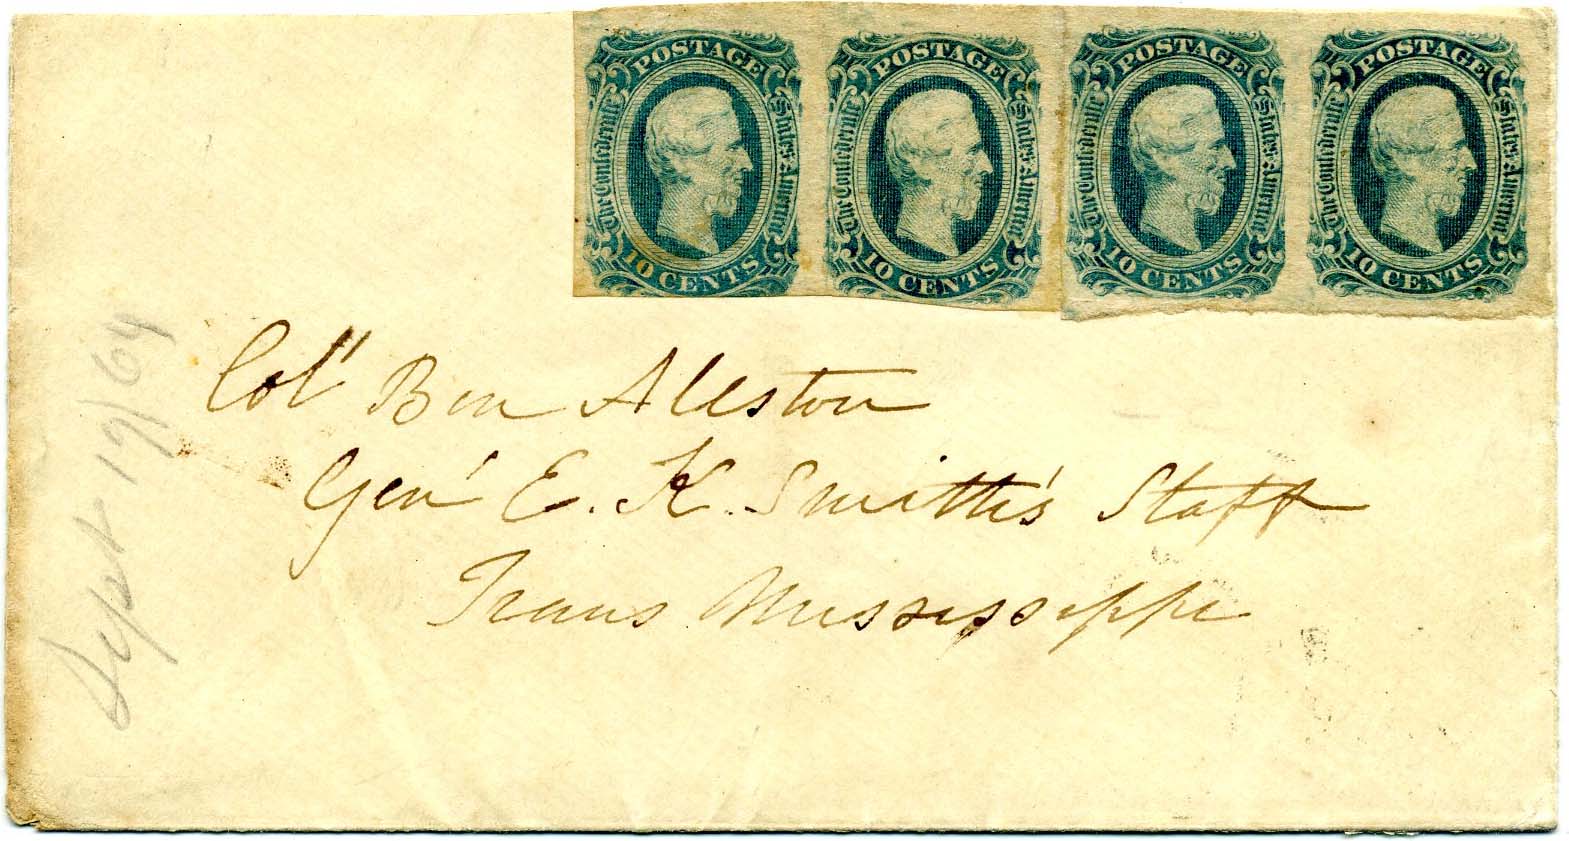 POSTAGE POSTAGE POSTAGE POSTAGE
The Confederate States America The Confederate States America The Confederate States America The Confederate States America
10 CENTS 10 CENTS 10 CENTS 10 CENTS
Col' Ben Allston
Gen' E. K. Smith's Staff
Trans Mississippi
Sept 19/64